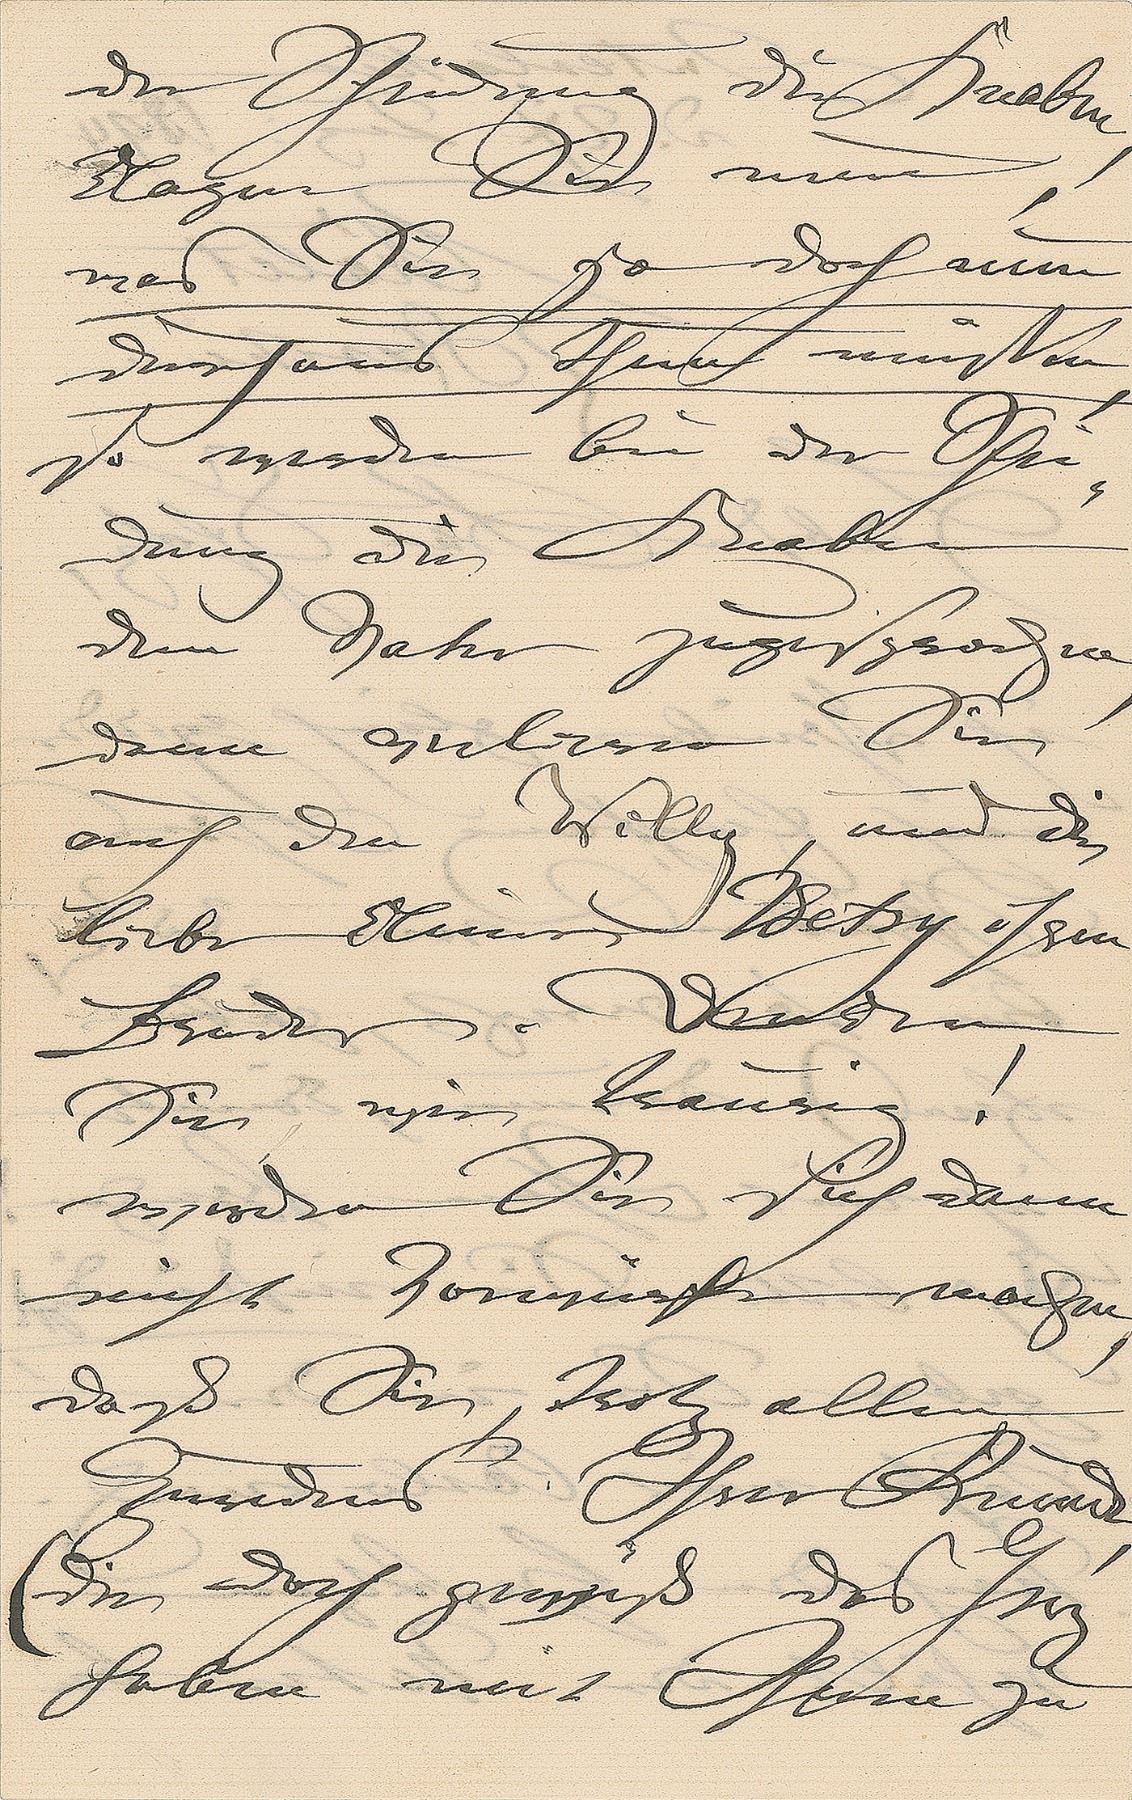 der Scheidung die Knaben,
Klagen Sie nun,!
was Sie ja doch nun
durchaus thun müssen,
so werden bei der Schei-
dung die Knaben
dem Vater zugesprochen,
dann verlieren Sie
auch den Willy, und die
liebe kleine Betsy ihren
Bruder.
Sie wie traurig!
werden Sie sich dann
nicht Vorwürfe machen,
daß Sie, trotz allen
Zuredens Ihrer Freunde,
(die doch gewiß das Herz
haben mit Ihnen zu